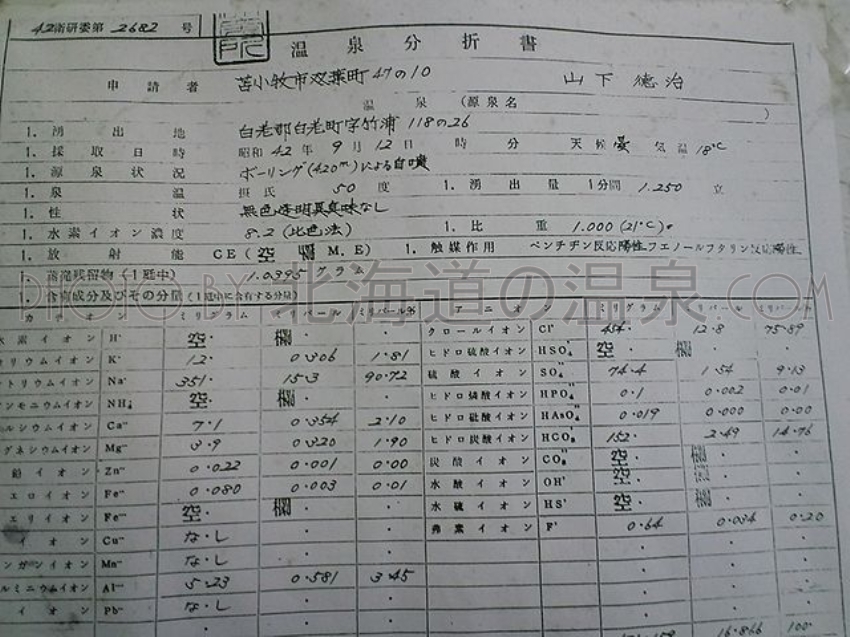 42衛研委第 2682 号
温泉分析書
申請者 苫小牧市双葉町47の10 山下 徳治
温泉 (源泉名 )
1. 湧出地 白老郡白老町字竹浦 118の26
1. 採取日時 昭和 42 年 9 月 12 日 時 分 天候 曇 気温 18°C
1. 源泉状況 ボーリング(420m)による自噴
1. 泉温 摂氏 50 度 1. 湧出量 1分間 1.250 立
1. 性状 無色透明臭味なし
1. 水素イオン濃度 8.2 (比色法) 1. 比重 1.000 (21°C)
1. 放射能 CE (空欄 M.E) 1. 触媒作用 ベンチヂン反応陽性フエノールフタリン反応陽性
1. 蒸発残留物 (1竏中) 1.0395 グラム
1. 含有成分及びその分量 (1竏中に含有する分量)
PHOTO BY 北海道の温泉.COM
カチオン ミリグラム ミリバール ミリバール% アニオン ミリグラム ミリバール ミリバール%
水素イオン H· 空 欄 クロールイオン Cl' 454. 12.8 75.89
リウムイオン K· 12. 0.306 1.81 ヒドロ硫酸イオン HSO₄' 空 欄
トリウムイオン Na· 351. 15.3 90.72 硫酸イオン SO₄'' 74.4 1.54 9.13
ンモニウムイオン NH₄· 空 欄 ヒドロ燐酸イオン HPO₄'' 0.1 0.002 0.01
ルシウムイオン Ca·· 7.1 0.354 2.10 ヒドロ砒酸イオン HAsO₄'' 0.019 0.000 0.00
グネシウムイオン Mg·· 3.9 0.320 1.90 ヒドロ炭酸イオン HCO₃' 152. 2.49 14.76
鉛イオン Zn·· 0.022 0.001 0.00 炭酸イオン CO₃'' 空 欄
エロイオン Fe·· 0.080 0.003 0.01 水酸イオン OH' 空 欄
エリイオン Fe··· 空 欄 水硫イオン HS' 空 欄
イオン Cu·· なし 弗素イオン F' 0.64 0.034 0.20
ンガンイオン Mn·· なし
ルミニウムイオン Al··· 5.23 0.581 3.45
イオン Pb·· なし
16.866 100.